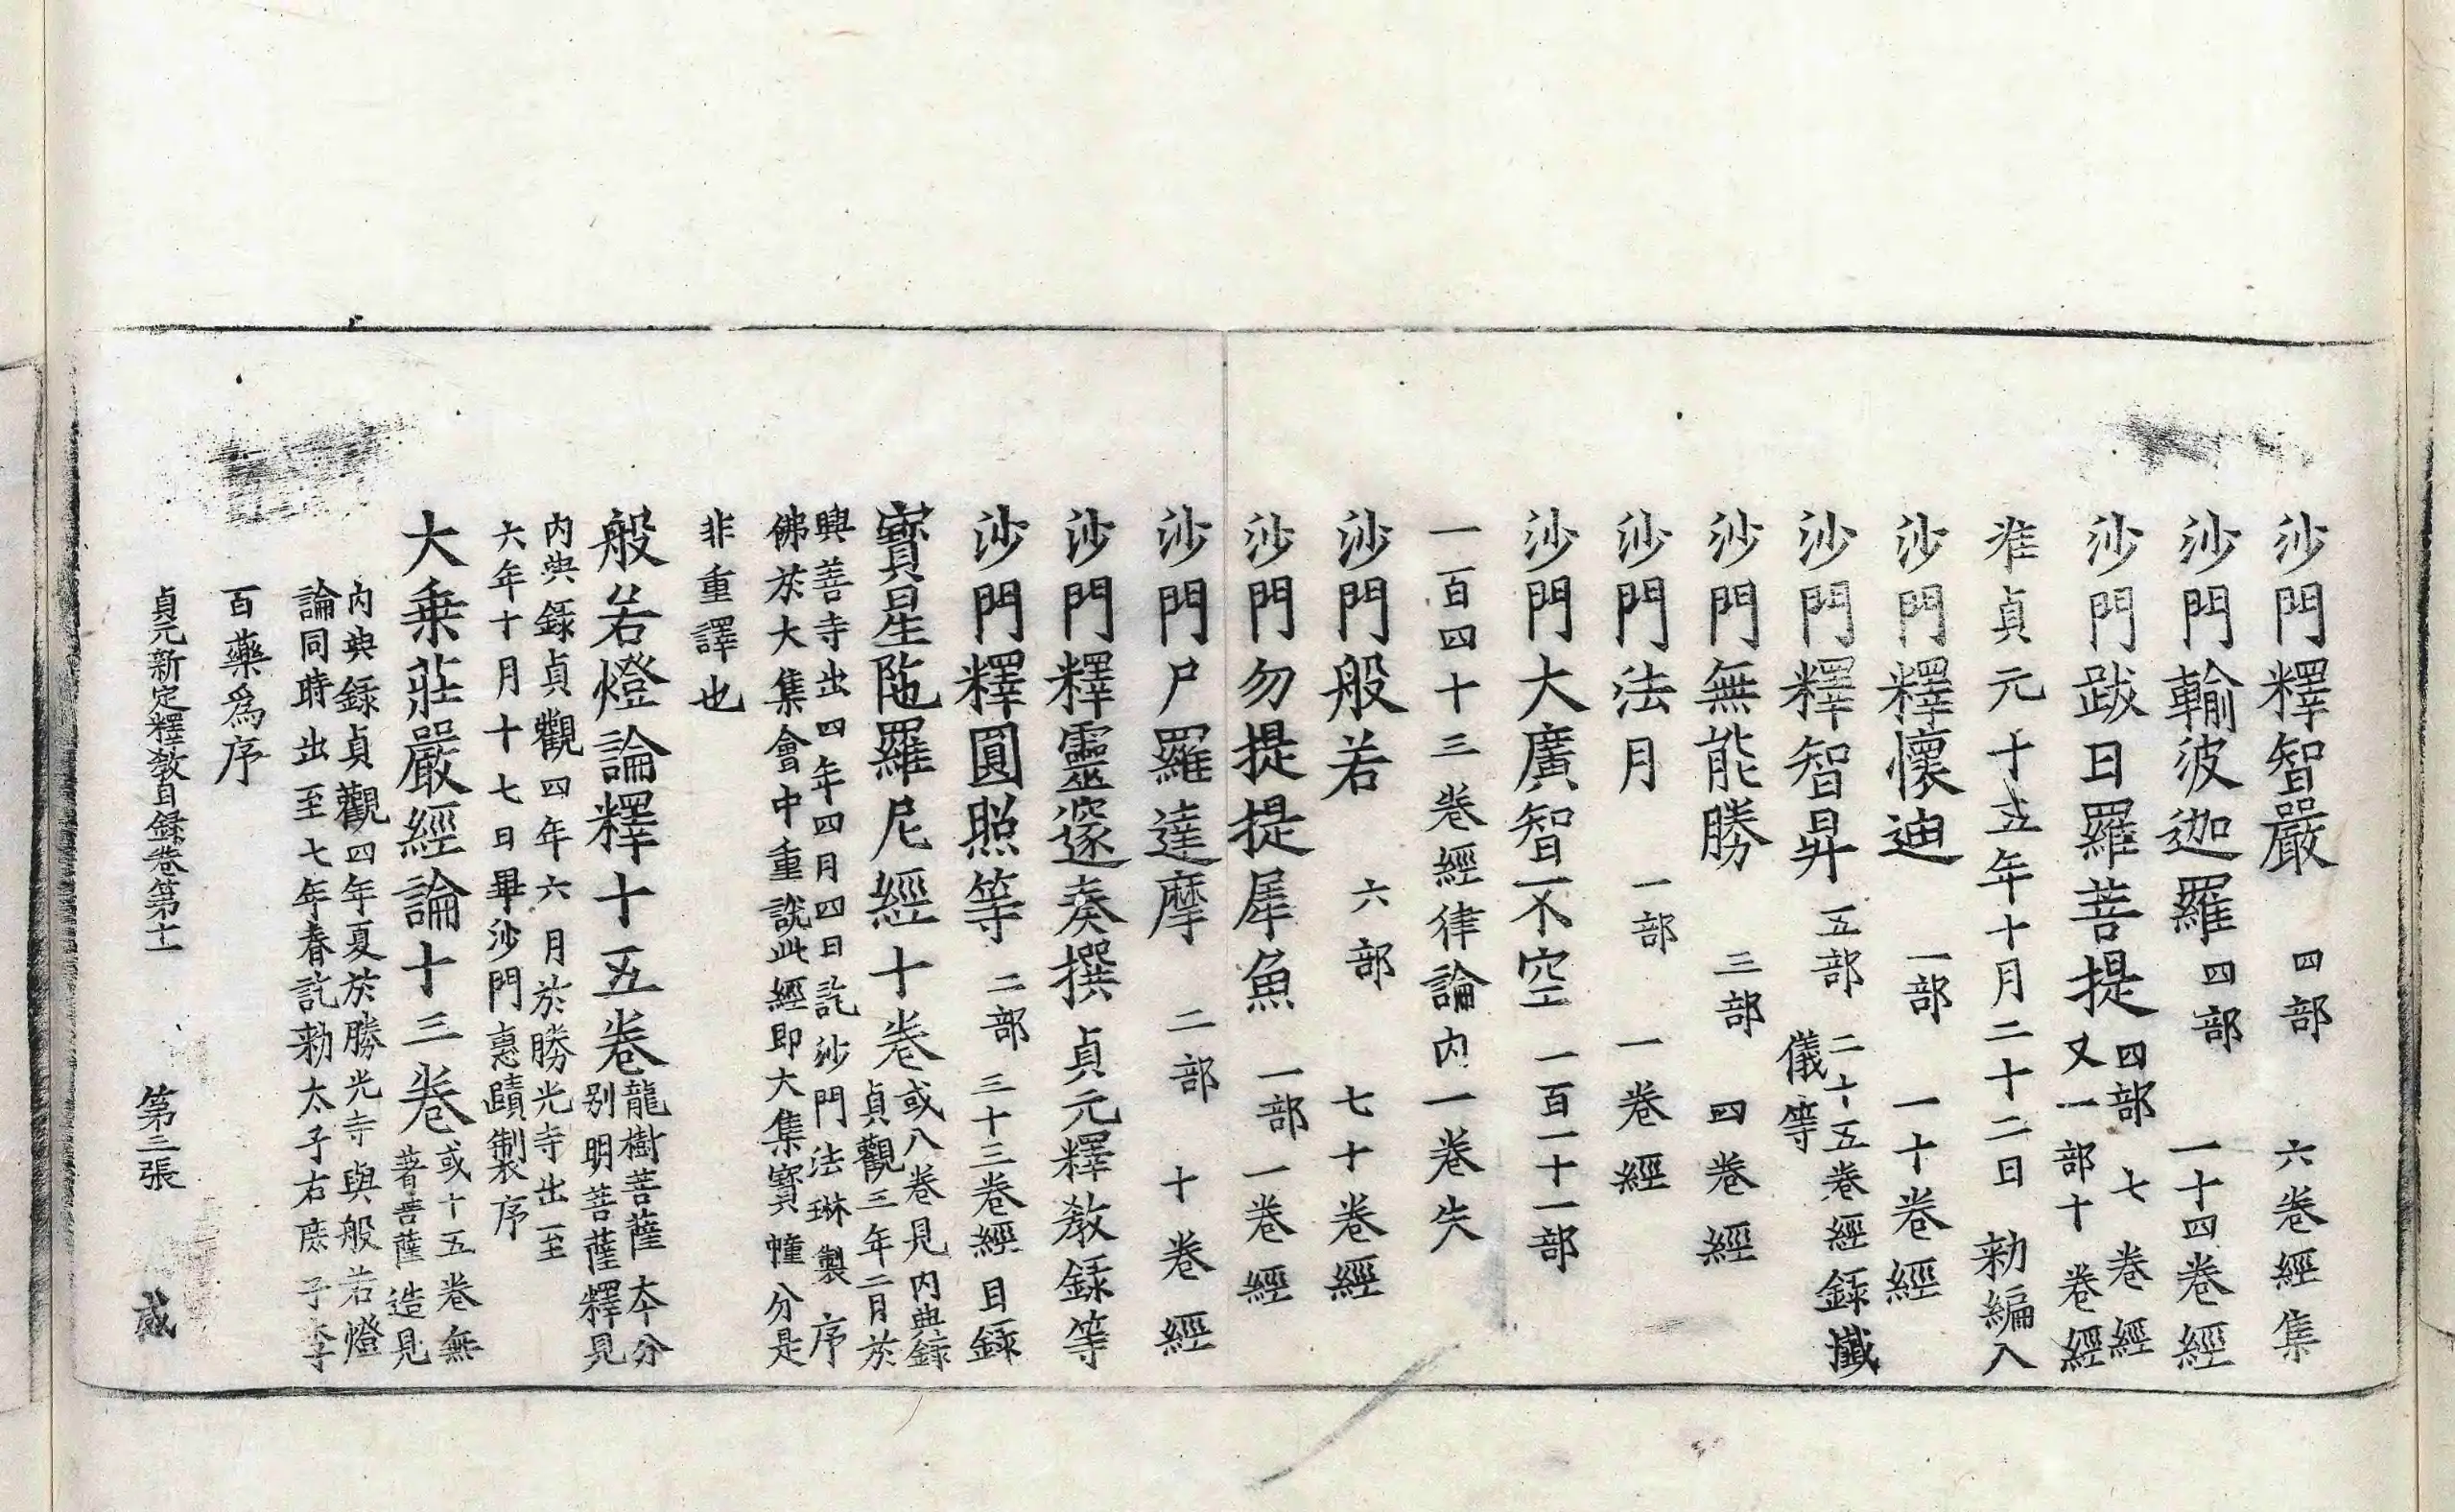 沙門釋智嚴 四部 六卷經集
沙門輸波迦羅 四部 一十四卷經
沙門跋日羅菩提 四部 七卷經
又一部十卷經
准貞元十五年十月二十二日 勑編入
沙門釋懷迪 一部 一十卷經
沙門釋智昇 五部 二十五卷經錄懺
儀等
沙門無能勝 三部 四卷經
沙門法月 一部 一卷經
沙門大廣智不空 一百一十一部
一百四十三卷經律論内一卷失
沙門般若 六部 七十卷經
沙門勿提提犀魚 一部 一卷經
沙門尸羅達摩 二部 十卷經
沙門釋靈邃奏撰 貞元釋教錄等
沙門釋圓照等 二部 三十三卷經目錄
寶星陁羅尼經十卷 或八卷見内典錄
貞觀三年二月於
興善寺出四年四月四日訖沙門法琳製序
佛於大集會中重說此經即大集寶幢分是
非重譯也
般若燈論釋十五卷 龍樹菩薩本分
别明菩薩釋見
内典錄貞觀四年六月於勝光寺出至
六年十月十七日畢沙門惠賾製序
大乗莊嚴經論十三卷 或十五卷無
著菩薩造見
内典錄貞觀四年夏於勝光寺與般若燈
論同時出至七年春訖勑太子右庶子李
百藥爲序
貞元新定釋教目録卷第十一 第三張 咸